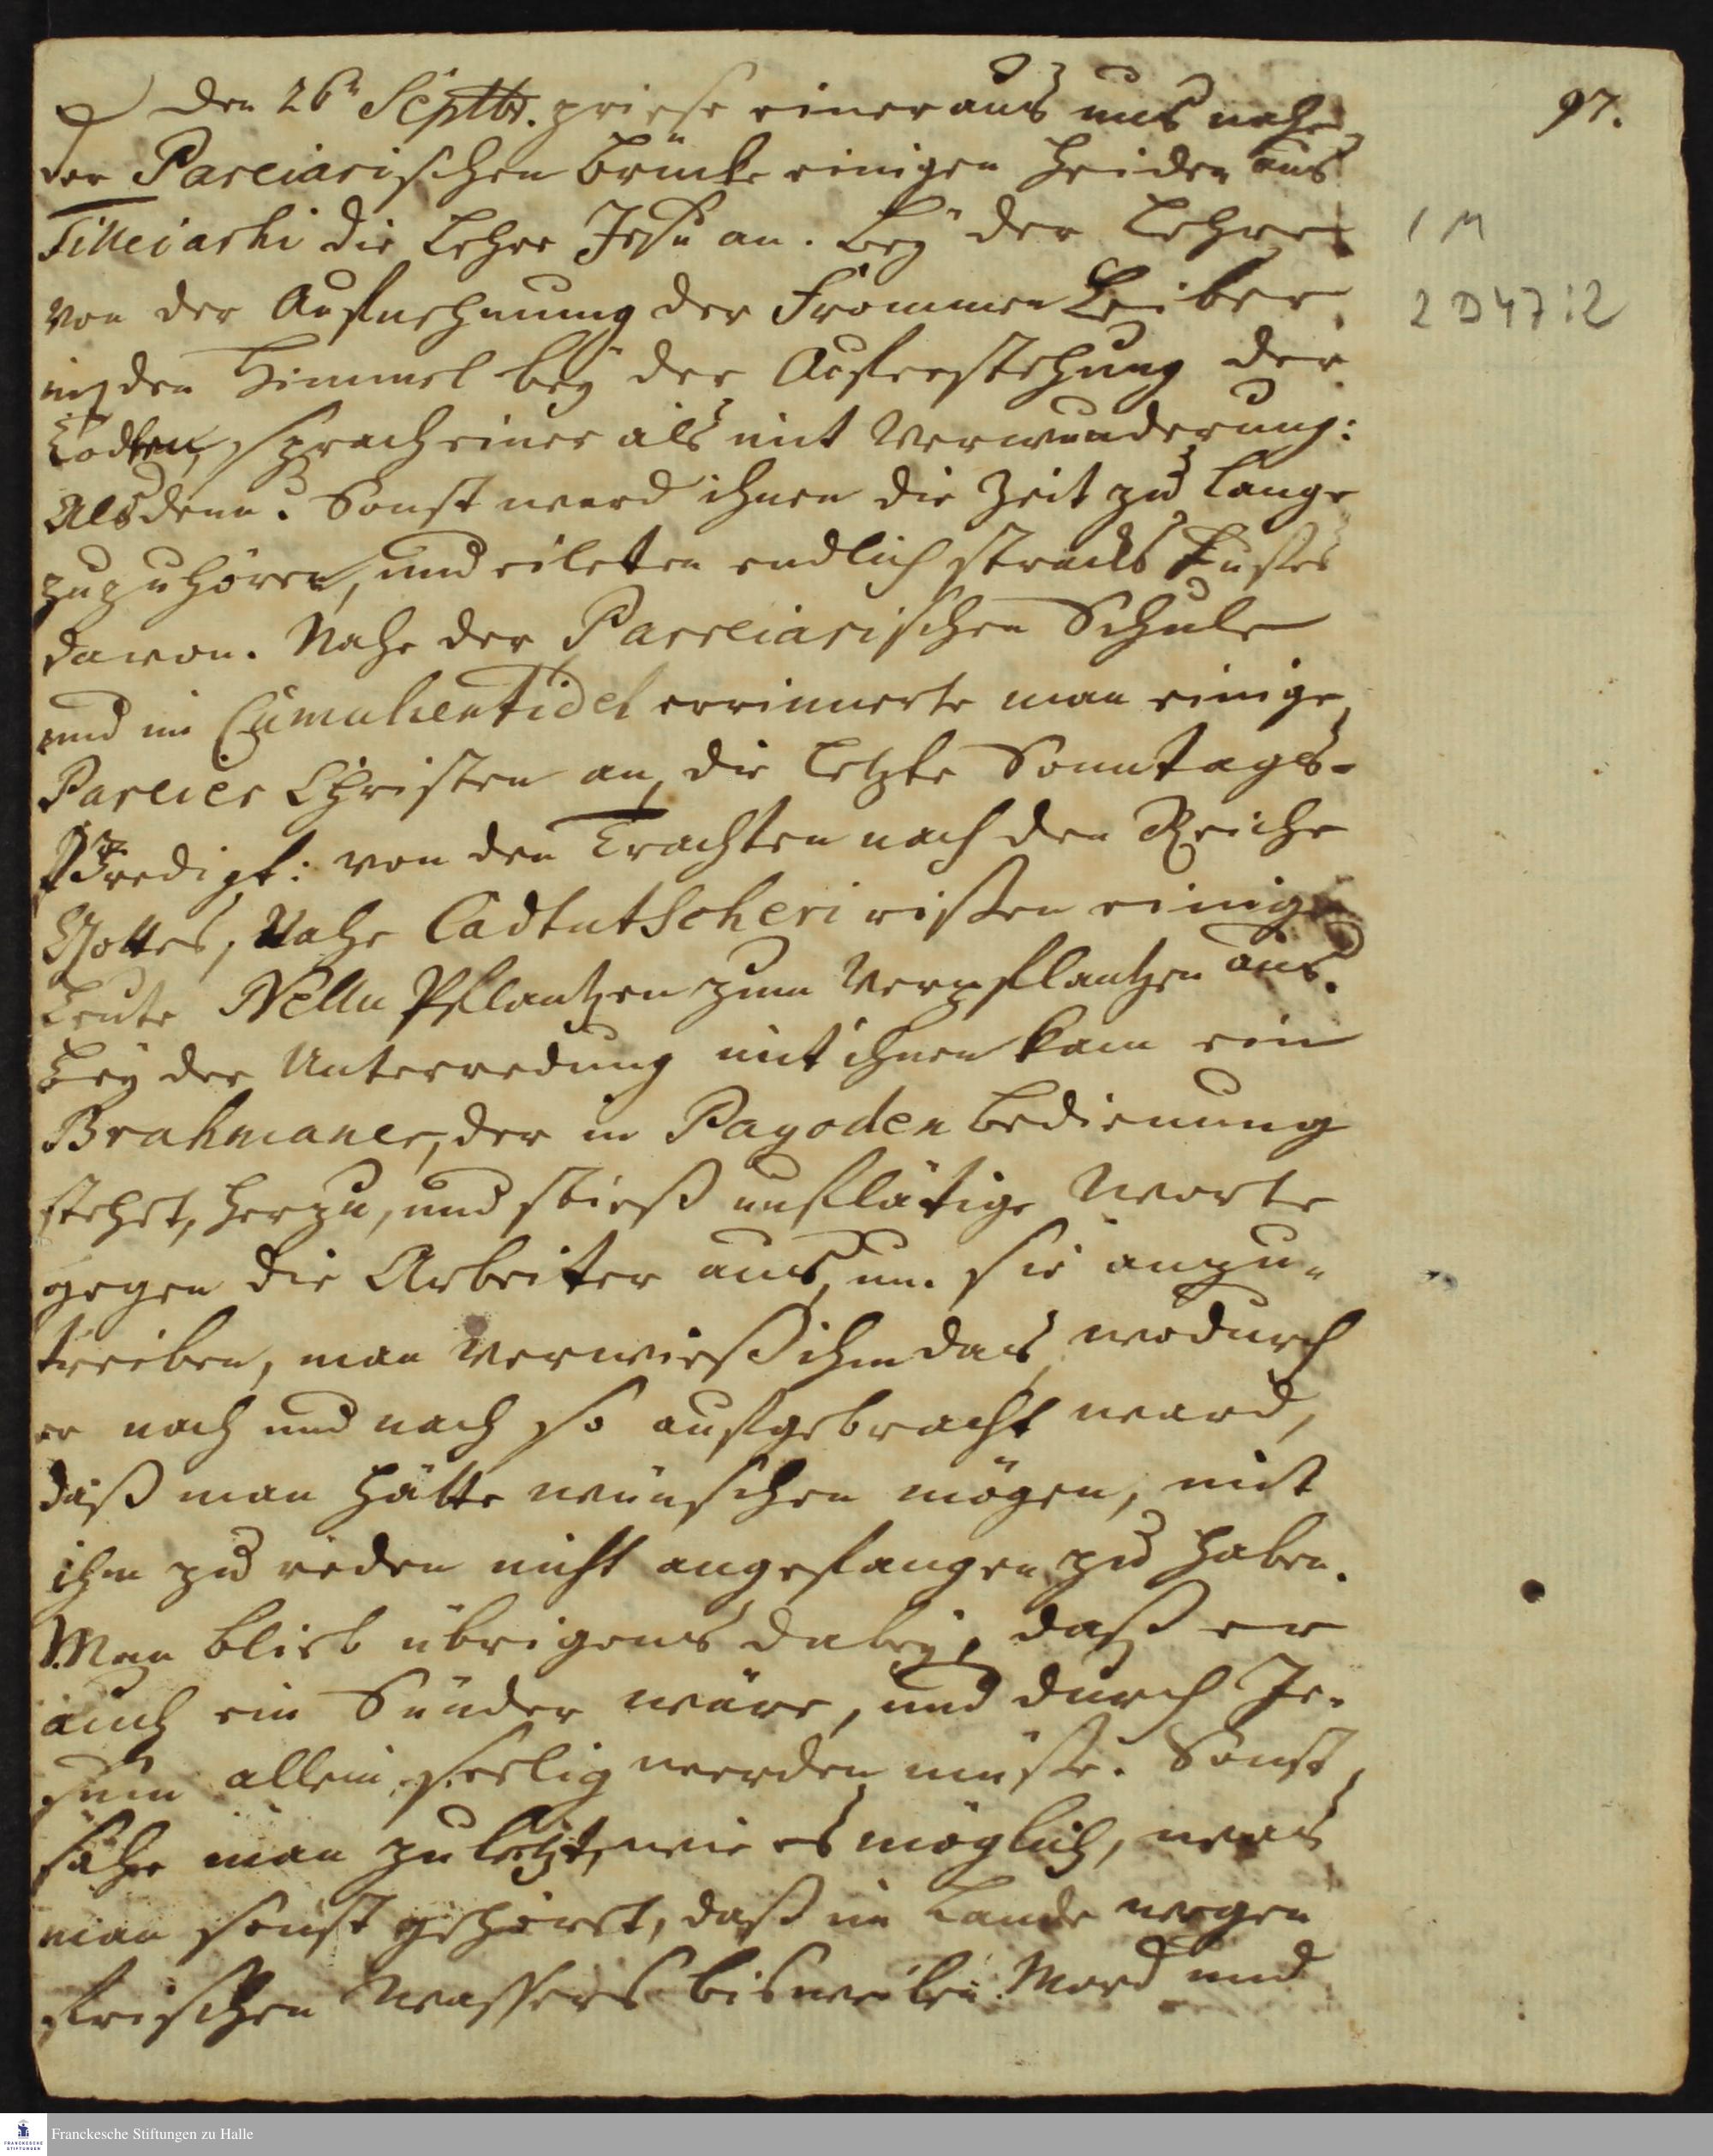 97.
den 26n Septbr. priese einer aus uns nahe
der Parreiarischen Brücke einigen Heiden aus
Tilleiarhi die Lehre Jesu an. Bey der Lehre
1 M
von der Aufnehmung der Frommen Leiber
2 D 47:2
in den Himmel bey der Auferstehung der
Todten, sprach einer als mit Verwunderung:
Alsdenn? Sonst ward ihnen die Zeit zu lange
zuzuhören, und eileten endlich stracks Fußes
davon. Nahe der Parreiarischen Schule
und im Cumulientidel errinnerte man einige
Parreier Christen an die letzte Sonntags-
Predigt: von den Trachten nach den Reiche
Gottes, Nahe Cadtutscheri rißen einige
Leute Nellu Pflantzen zum Verpflantzen aus.
Bey der Unterredung mit ihnen kam ein
Brahmaner, der in Pagoden bedienung
stehet, herzu, und stieß unflätige Worte
gegen die Arbeiter aus, um sie anzu-
treiben, man verwieß ihm das, wodurch
er nach und nach so aufgebracht ward,
daß man hätte wünschen mögen, mit
ihm zu reden nicht angefangen zu haben.
Man blieb übrigens dabey, daß er
auch ein Sünder wäre, und durch Je-
sum allein seelig werden müste. Sonst
sahe man zuletzt, wie es möglich, was
man sonst gehöret, daß im Lande wegen
frischen Wassers bisweilen Mord und
Franckesche Stiftungen zu Halle